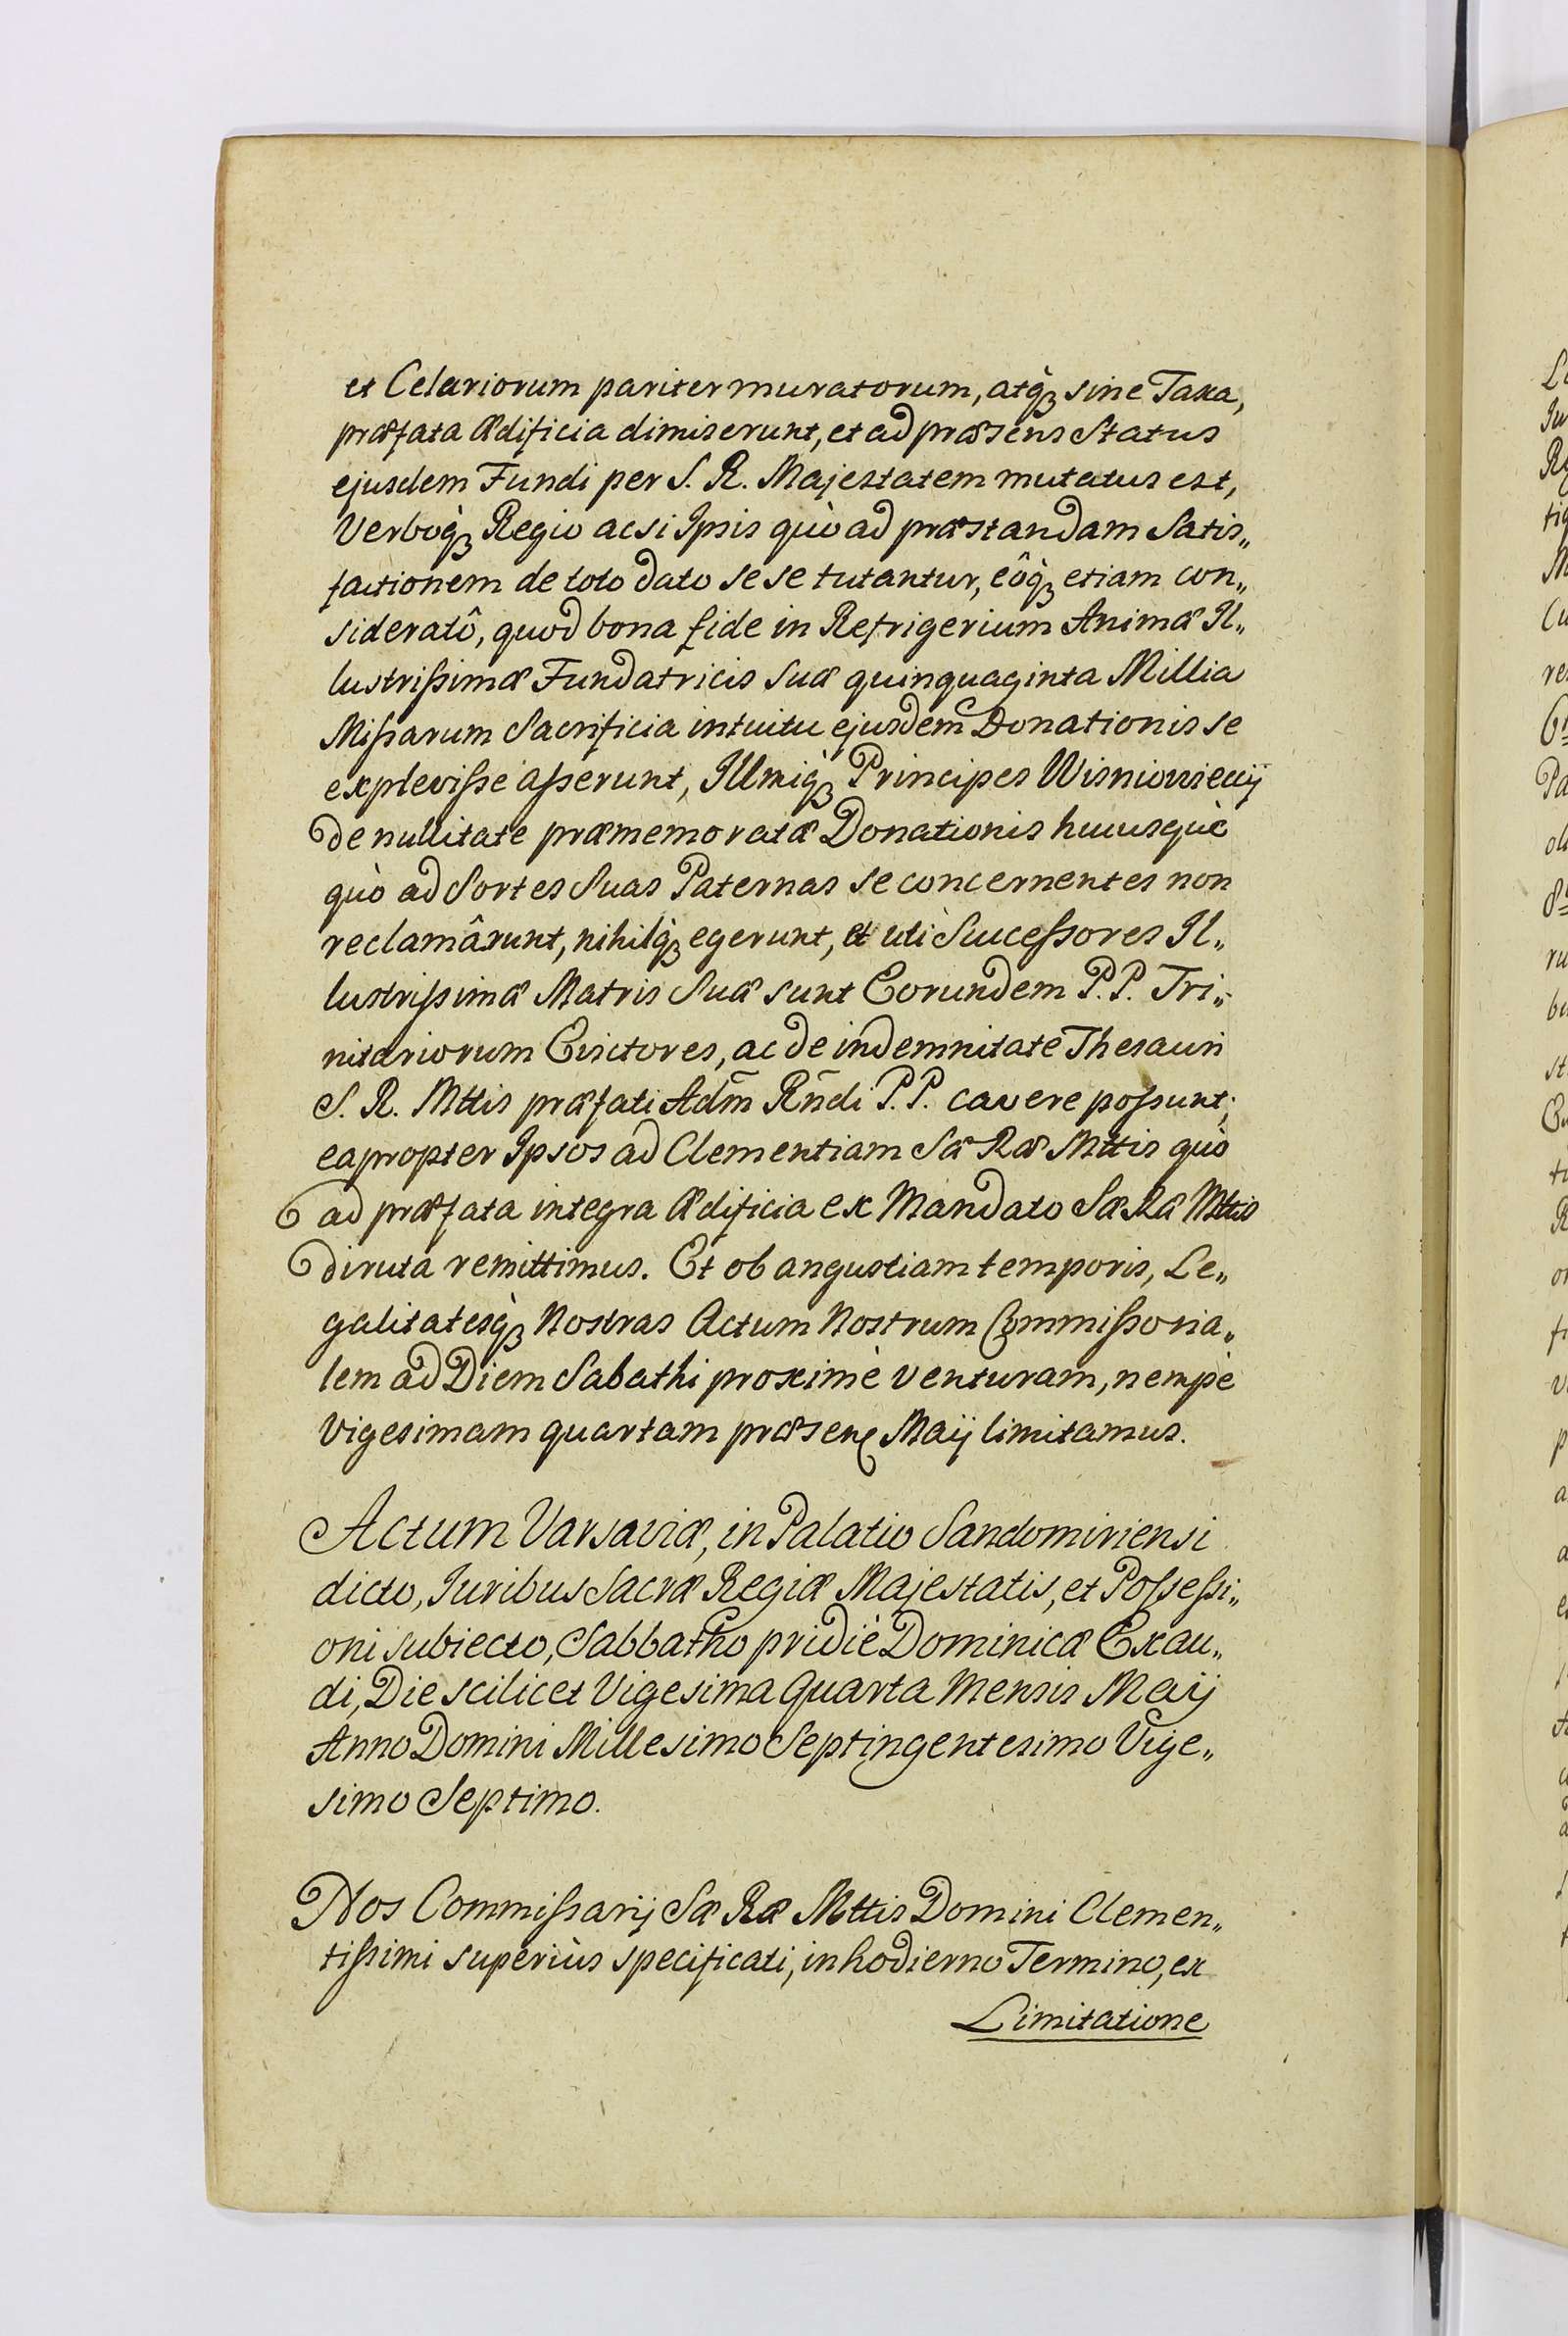 et Celariorum pariter muratorum, atq̀ꝫ sine Taxa,
præfata Ædificia dimiserunt, et ad præsens Status
ejusdem Fundi per S. R. Majestatem mutatus est,
Verboq̀ꝫ Regio acsi Ipsis quò ad præstandam Satis„
factionem de toto dato sese tutantur, eôq̀ꝫ etiam con„
sideratô, quod bona fide in Refrigerium Animæ Il„
lustrißimæ Fundatricis Suæ quinquaginta Millia
Mißarum Sacrificia intuitu ejusdem Donationis se
explevisse asserunt, Illmiq̀ꝫ Principes Wisniowiecij
de nullitate præmemoratæ Donationis hucusquè
quò ad Sortes Suas Paternas se concernentes non
reclamârunt, nihilq̀ꝫ egerunt, et uti Succeßores Il„
lustrißimæ Matris Suæ sunt Eorundem P.P. Tri„
nitariorum Evictores, ac de indemnitate Thesauri
S. R. Mttis præfati Adm̄ Rn̄di P.P. cavere poßunt;
eapropter Ipsos ad Clementiam Sæ Ræ Mttis quò
ad præfata integra Ædificia ex Mandato Sæ Ræ Mttis
diruta remittimus. Et ob angustiam temporis, Le„
galitatesq̀ꝫ Nostras Actum Nostrum Commißoria„
lem ad Diem Sabathi proximè venturam, nempè
Vigesimam quartam præsenꝭ Maij limitamus.
Actum Varsaviæ, in Palatio Sandomiriensi
dicto, Juribus Sacræ Regiæ Majestatis, et Poßeßi„
oni subiecto, Sabbatho pridiè Dominicæ Exau„
di, Die scilicet Vigesima Quarta Mensis Maij
Anno Domini Millesimo Septingentesimo Vige„
simo Septimo.
Nos Commißarij Sæ Ræ Mttis Domini Clemen„
tißimi superiùs specificati, in hodierno Termino, ex
Limitatione